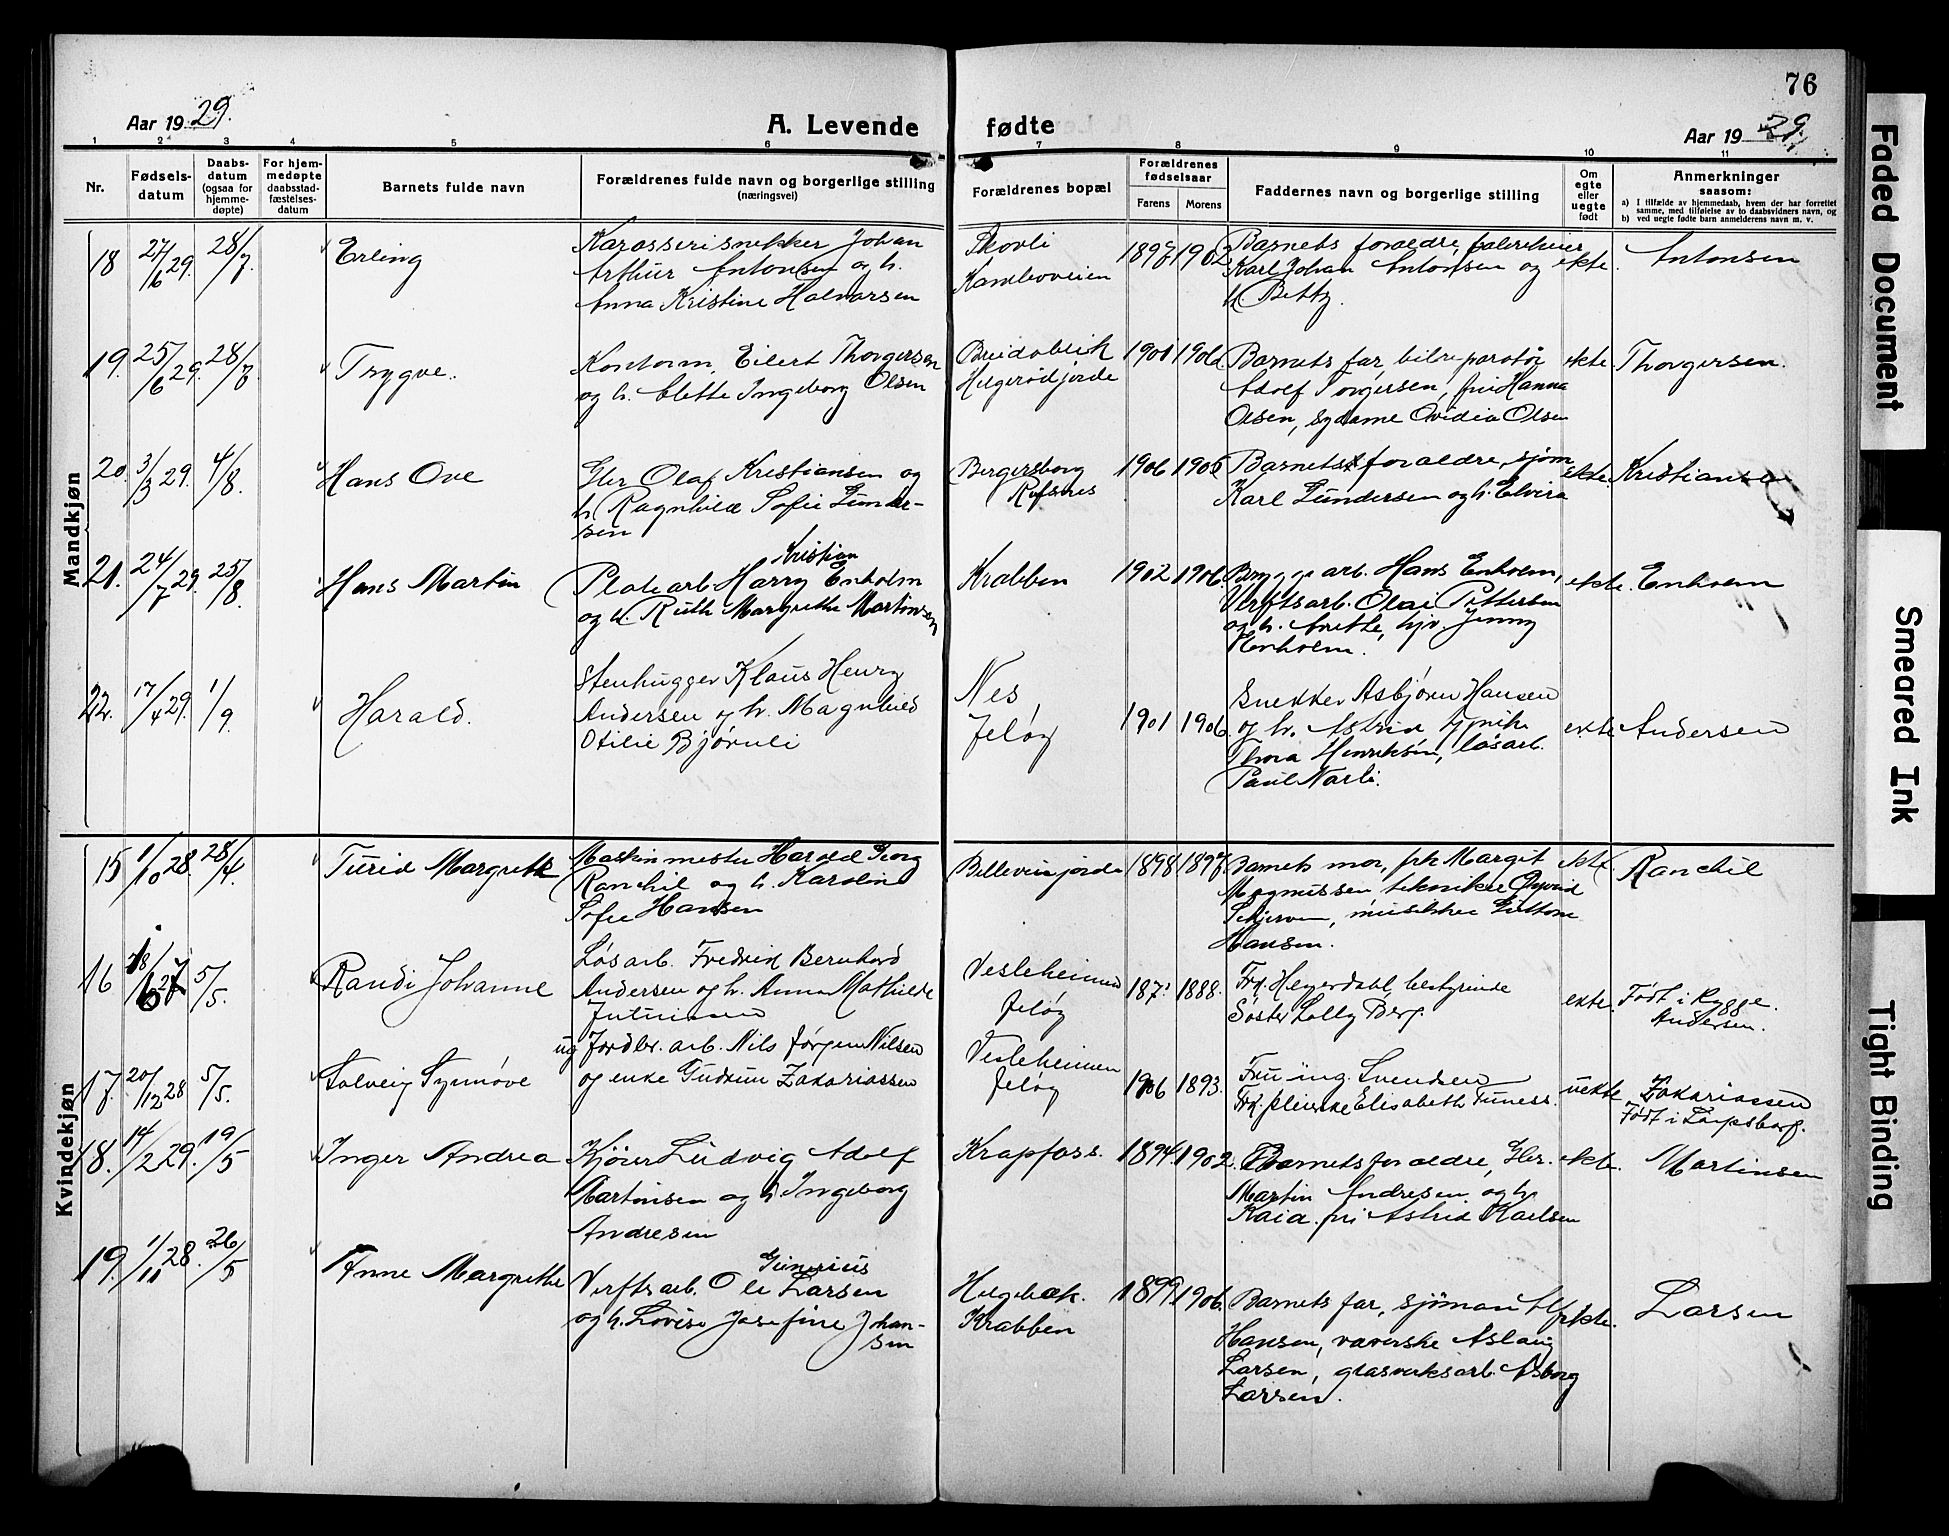 76
Aar 1929.
A. Levende
fødte
Aar 1929.
1 2 3 4 5 6 7 8 9 10 11
Nr.
Fødsels-
datum
Daabs-
datum
(ogsaa for
hjemme-
døpte)
For hjem-
medøpte
daabsstad-
fæstelses-
datum
Barnets fulde navn
Forældrenes fulde navn og borgerlige stilling
(næringsvei)
Forældrenes bopæl
Forældrenes
fødselsaar
Farens
Morens
Faddernes navn og borgerlige stilling
Om
egte
eller
uegte
født
Anmerkninger
saasom:
a) I tilfælde av hjemmedaab, hvem der har forrettet
samme, med tilføielse av to daabsvidners navn, og
b) ved uegte fødte barn anmelderens navn m. v.
Mandkjøn
18 27/6 29. 28/7. Erling
Karosserisnekker Johan
Arthur Antonsen og h.
Anna Kristine Halvorsen
Skovli
Kamboveien
1902
Barnets foraeldre,
Karl Johan Antonsen og
h. Betty.
ekte. Antonsen
19. 25/6 29. 28/7 Trygve.
Kontorm. Eilert Thorgersen
og h. Olsen
Breidablik
Helgerødjorde
1901 1906.
Barnets far, bilreparatør
Adolf Torgersen, fru Hanna
Olsen, sydame Ovidia Olsen
ekte Thorgersen.
20. 3/3 29. 4/8. Hans Ove
Gbr Olaf Kristiansen og
h. Ragnhild Sofie Gunder-
sen
Bergersborg
Refsnes
1906 1905
Barnets foraeldre, sjøm
Karl Gundersen og h. Elvira
ekte. Kristiansen
21. 24/7 29. 25/8. Hans Martin
Kristian
Platearb. Harry Enholm
og h. Ruth Margrethe Martinsen
Krabben
1902 1906
Bryggearb. Hans Enholm,
Verftsarb. Olai Pettersen
og h. Anette, hjv. Jenny
Enholm.
ekte. Enholm
22. 17/4 29. 1/9. Harald.
Stenhugger Klaus Henry
Andersen og h. Magnhild
Otilie Bjørnli
Nes
Jeløy
1901 1906.
Snekker Asbjørn Hansen
og h. Astrid
Thora Henriksen, løsarb.
Paul Narli.
ekte Andersen
Kvindekjøn
15 1/10 28. 28/4. Turid Margrethe
Maskinmester Harald Georg
Ranchil og h. Karoline
Sofie Hansen
Bellevuejordet
1898 1897.
Barnets mor, frk Margit
Magnussen, tekniker Øyvind
Skjerven, musiker Guttorm
Hansen.
ekte Ranchil
16 18/6 27 5/5. Randi Johanne
Løsarb. Fredrik Bernhard
Andersen og h. Anna Mathilde
Vesleheimen
Jeløy
1888.
Frk. Heyerdahl, bestyrinde
Søster Lolly Berg.
ekte. Født i Rygge.
Andersen.
17. 20/12 28 5/5. Solveig Synnøve
ug Jordbr. arb. Nils Jørgen Nilsen
og enke Gudrun Zakariassen
Vesleheimen
Jeløy
1906 1893.
Fru ing. Svendsen
Frk. pleierske Elisabeth
uekte Zakariassen
Født i Sarpsborg.
18. 14/2 29. 19/5 Inger Andrea
Kjører Ludvig Adolf
Martinsen og h. Ingeborg
Andresen
Krapfoss.
1894. 1902.
Barnets foraeldre, Gbr.
Martin Andresen og h.
Kaia, fru Astrid Karlsen
ekte. Martinsen
19. 1/11 28. 26/5 Anne Margrethe
Gunerius
Verftsarb. Ole Larsen
og h. Lovise Josefine Johan-
sen
Helgebak.
Krabben
1899. 1906.
Barnets far, sjøman Alf
Hansen, vaverske Aslaug
Larsen, glasverksarb. Asborg
Larsen.
ekte. Larsen
Faded Document
Smeared Ink
Tight Binding